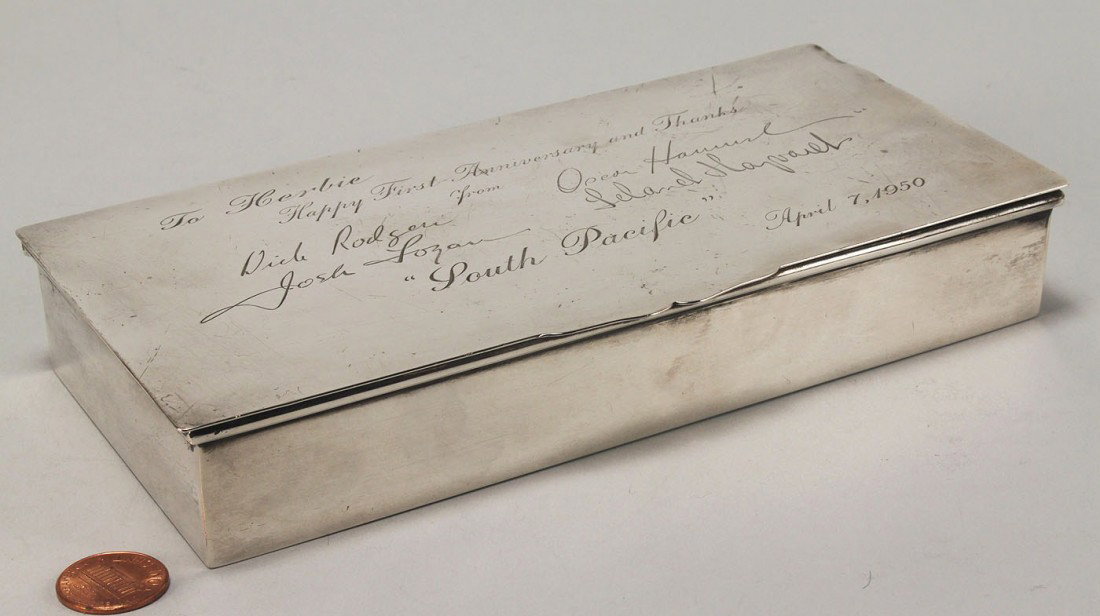 To Herbie
Happy First Anniversary and Thanks
from
Dick Rodgers Oscar Hammerst
Josh Logan Leland Hayward
"South Pacific"
April 7, 1950